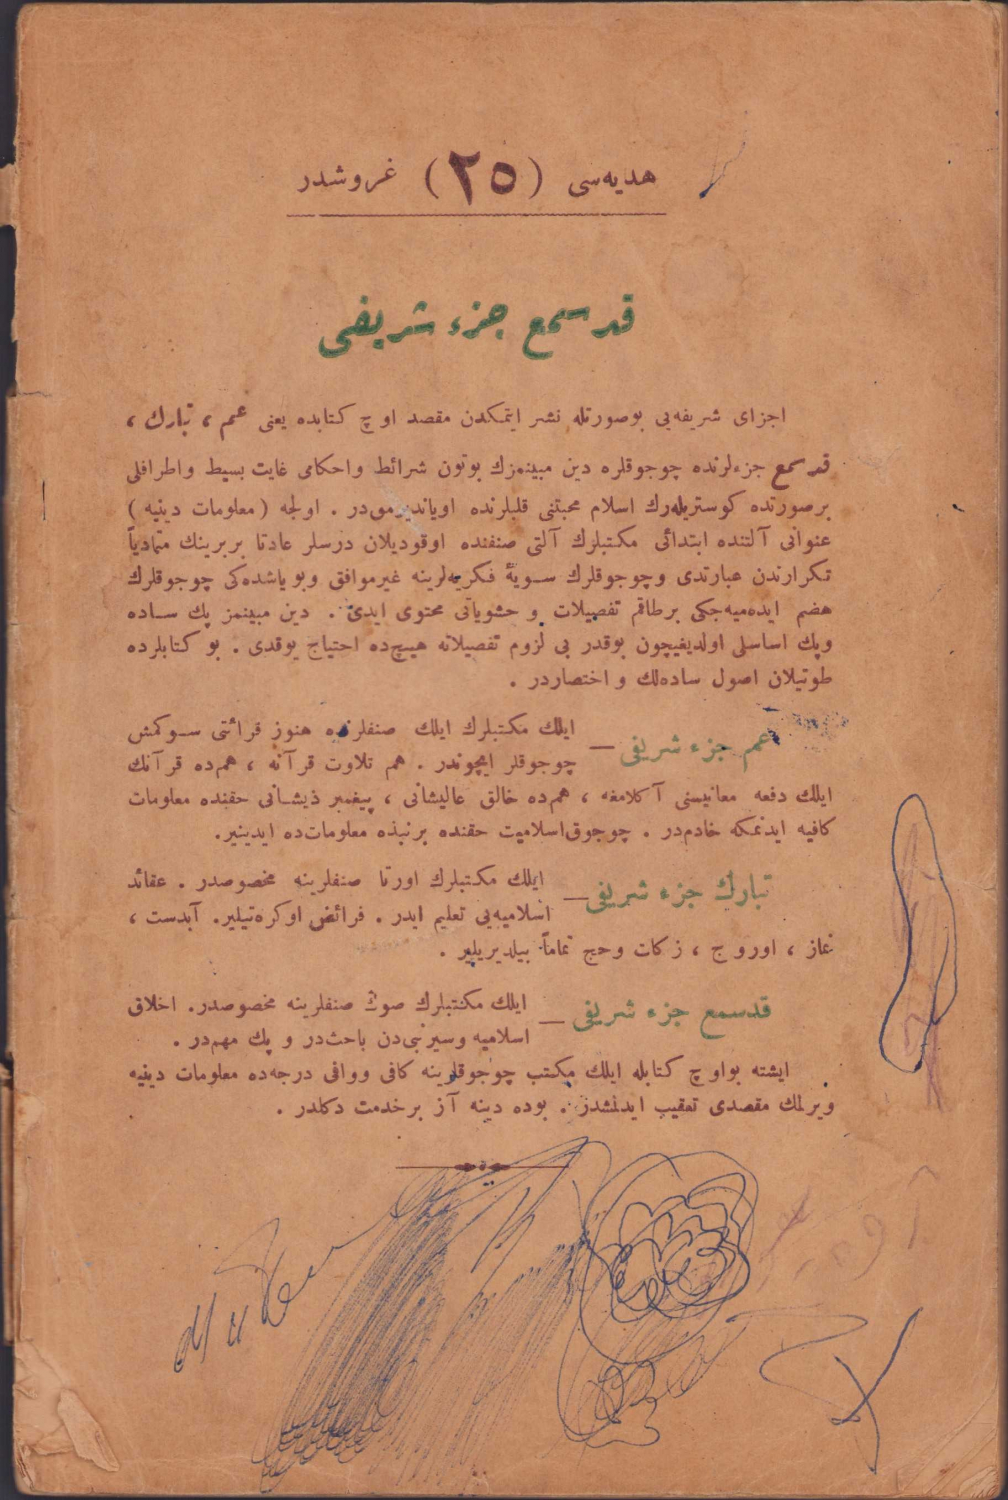 هديه‌سى (٢٥) غروشدر
قد سمع جزء شريفى
اجزاى شريفه‌يى بوصورتله نشر ايتمكدن مقصد اوچ كتابده يعنى عم ، تبارك ،
قد سمع جزءلرنده چوجوقلره دين مبينمزك بوتون شرائط واحكامى غايت بسيط واطرافلى
برصورتده كوستريله‌رك اسلام محبتنى قلبلرنده اوياندیرمق‌در . اولجه ( معلومات دينيه )
عنوانى آلتنده ابتدائى مكتبلرك آلتى صنفنده اوقوديلان درسلر عادتا بربرينك متمادياً
تكرارندن عبارتدى وچوجوقلرك سويهٔ فكريه‌لرينه غيرموافق وبو ياشده‌كى چوجوقلرك
هضم ايده‌ميه‌جكى برطاقم تفصيلات و حشوياتى محتوى ايدى . دين مبينمز پك ساده
وپك اساسلى اولديغيچون بوقدر بى لزوم تفصيلاته هيچ‌ده احتياج يوقدى . بو كتابلرده
طوتيلان اصول ساده‌لك و اختصاردر .
عم جزء شريفى — ايلك مكتبلرك ايلك صنفلرنده هنوز قرائتى سوكمش
چوجوقلر ايچوندر . هم تلاوت قرآنه ، هم‌ده قرآنك
ايلك دفعه معانيسنى آكلامغه ، هم‌ده خالق عاليشانى ، پيغمبر ذيشانى حقنده معلومات
كافيه ايدنمكه خادم‌در . چوجوق‌اسلاميت حقنده برنبذه معلومات‌ده ايدينير.
تبارك جزء شريفى — ايلك مكتبلرك اورتا صنفلرينه مخصوصدر . عقائد
اسلاميه‌يى تعليم ايدر . فرائض اوكره‌تيلير. آبدست ،
نماز ، اوروج ، زكات وحج تماماً بيلديريلير .
قدسمع جزء شريفى — ايلك مكتبلرك صوڭ صنفلرينه مخصوصدر. اخلاق
اسلاميه وسيرنبى‌دن باحث‌در و پك مهم‌در .
ايشته بواوچ كتابله ايلك مكتب چوجوقلرينه كافى ووافى درجه‌ده معلومات دينيه
ويرلمك مقصدى تعقيب ايدلمشدر . بوده دينه آز برخدمت دكلدر .